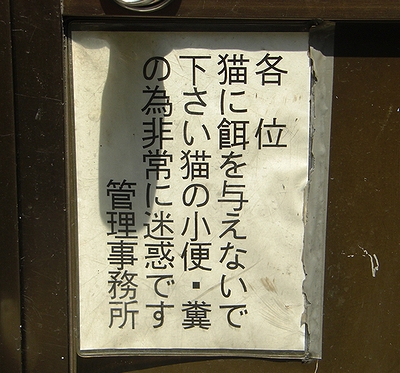 各位
猫に餌を与えないで
下さい猫の小便・糞
の為非常に迷惑です
管理事務所